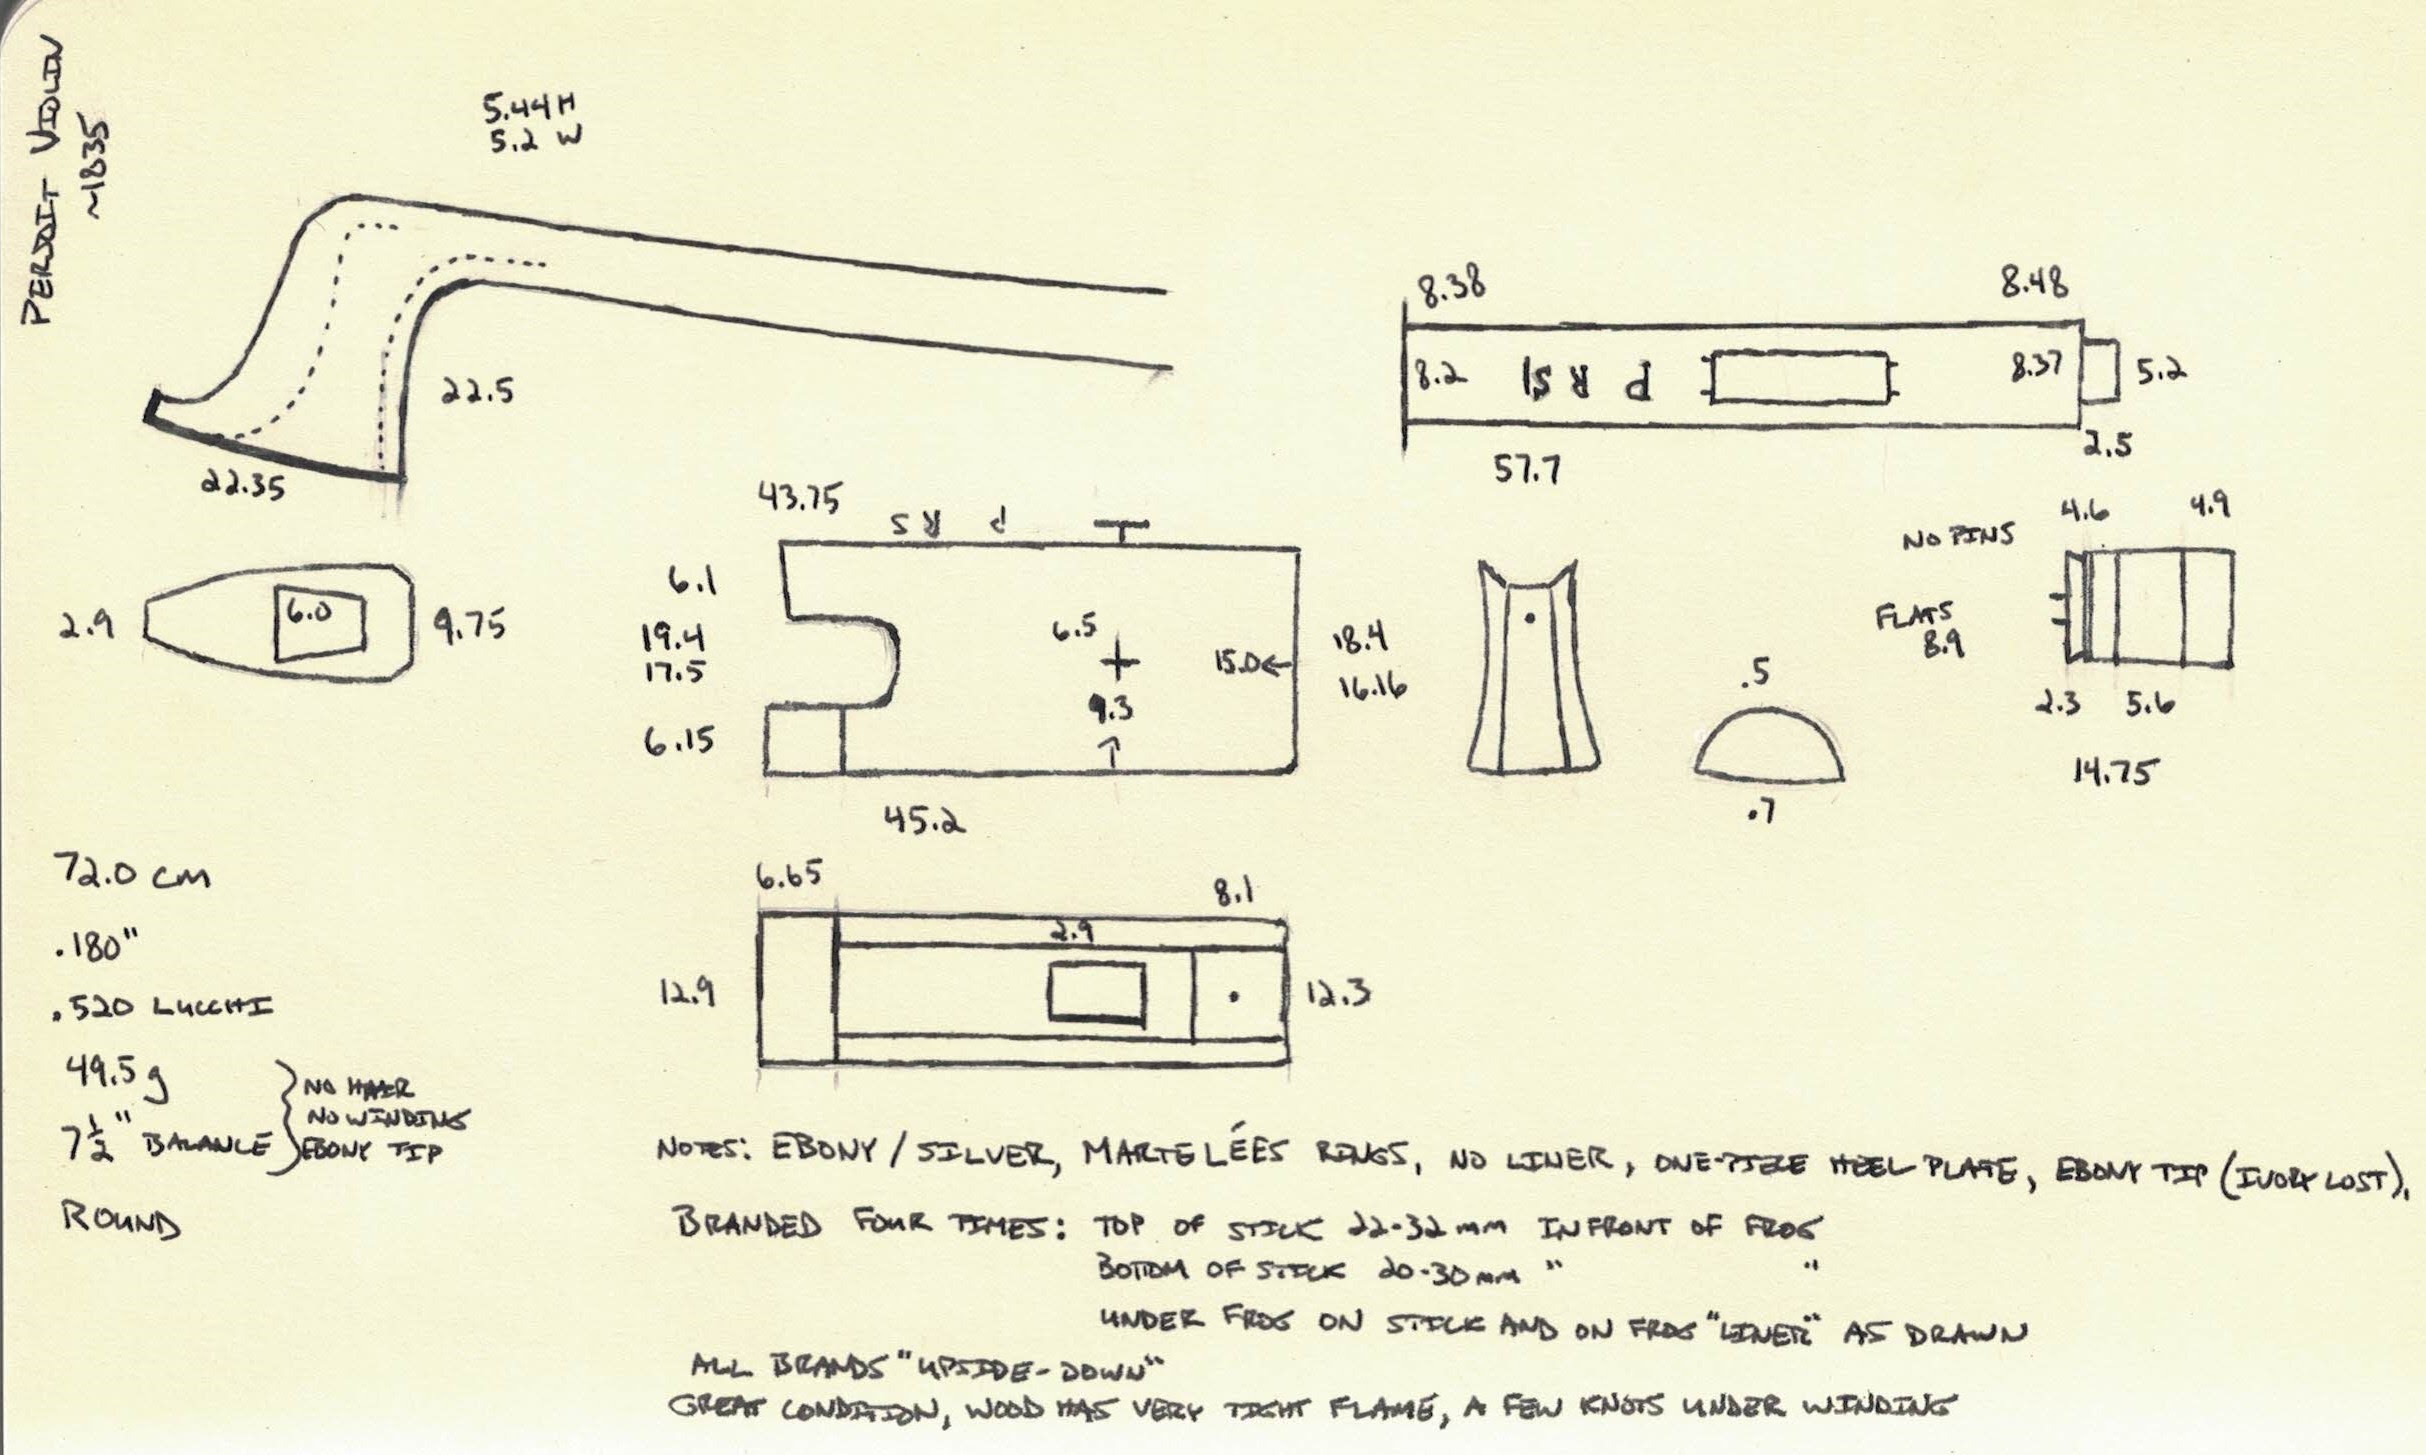 PERSOIT VIOLIN
~1835
5.44 H
5.2 W
22.5
22.35
8.38
8.48
8.2
P R S
8.37
5.2
57.7
2.5
2.9
6.0
9.75
43.75
P R S
6.1
19.4
17.5
6.15
6.5
9.3
15.0
18.4
16.16
45.2
.5
.7
NO PINS
FLATS
8.9
4.6
4.9
2.3
5.6
14.75
6.65
8.1
2.9
12.9
12.3
72.0 cm
.180"
.520 LUCCHI
49.5 g
7 1/2" BALANCE
NO HAIR
NO WINDING
EBONY TIP
ROUND
NOTES: EBONY / SILVER, MARTELÉES RINGS, NO LINER, ONE-PIECE HEEL PLATE, EBONY TIP (IVORY LOST),
BRANDED FOUR TIMES: TOP OF STICK 22-32 mm IN FRONT OF FROG
BOTTOM OF STICK 20-30 mm " "
UNDER FROG ON STICK AND ON FROG "LINER" AS DRAWN
ALL BRANDS "UPSIDE-DOWN"
GREAT CONDITION, WOOD HAS VERY TIGHT FLAME, A FEW KNOTS UNDER WINDING